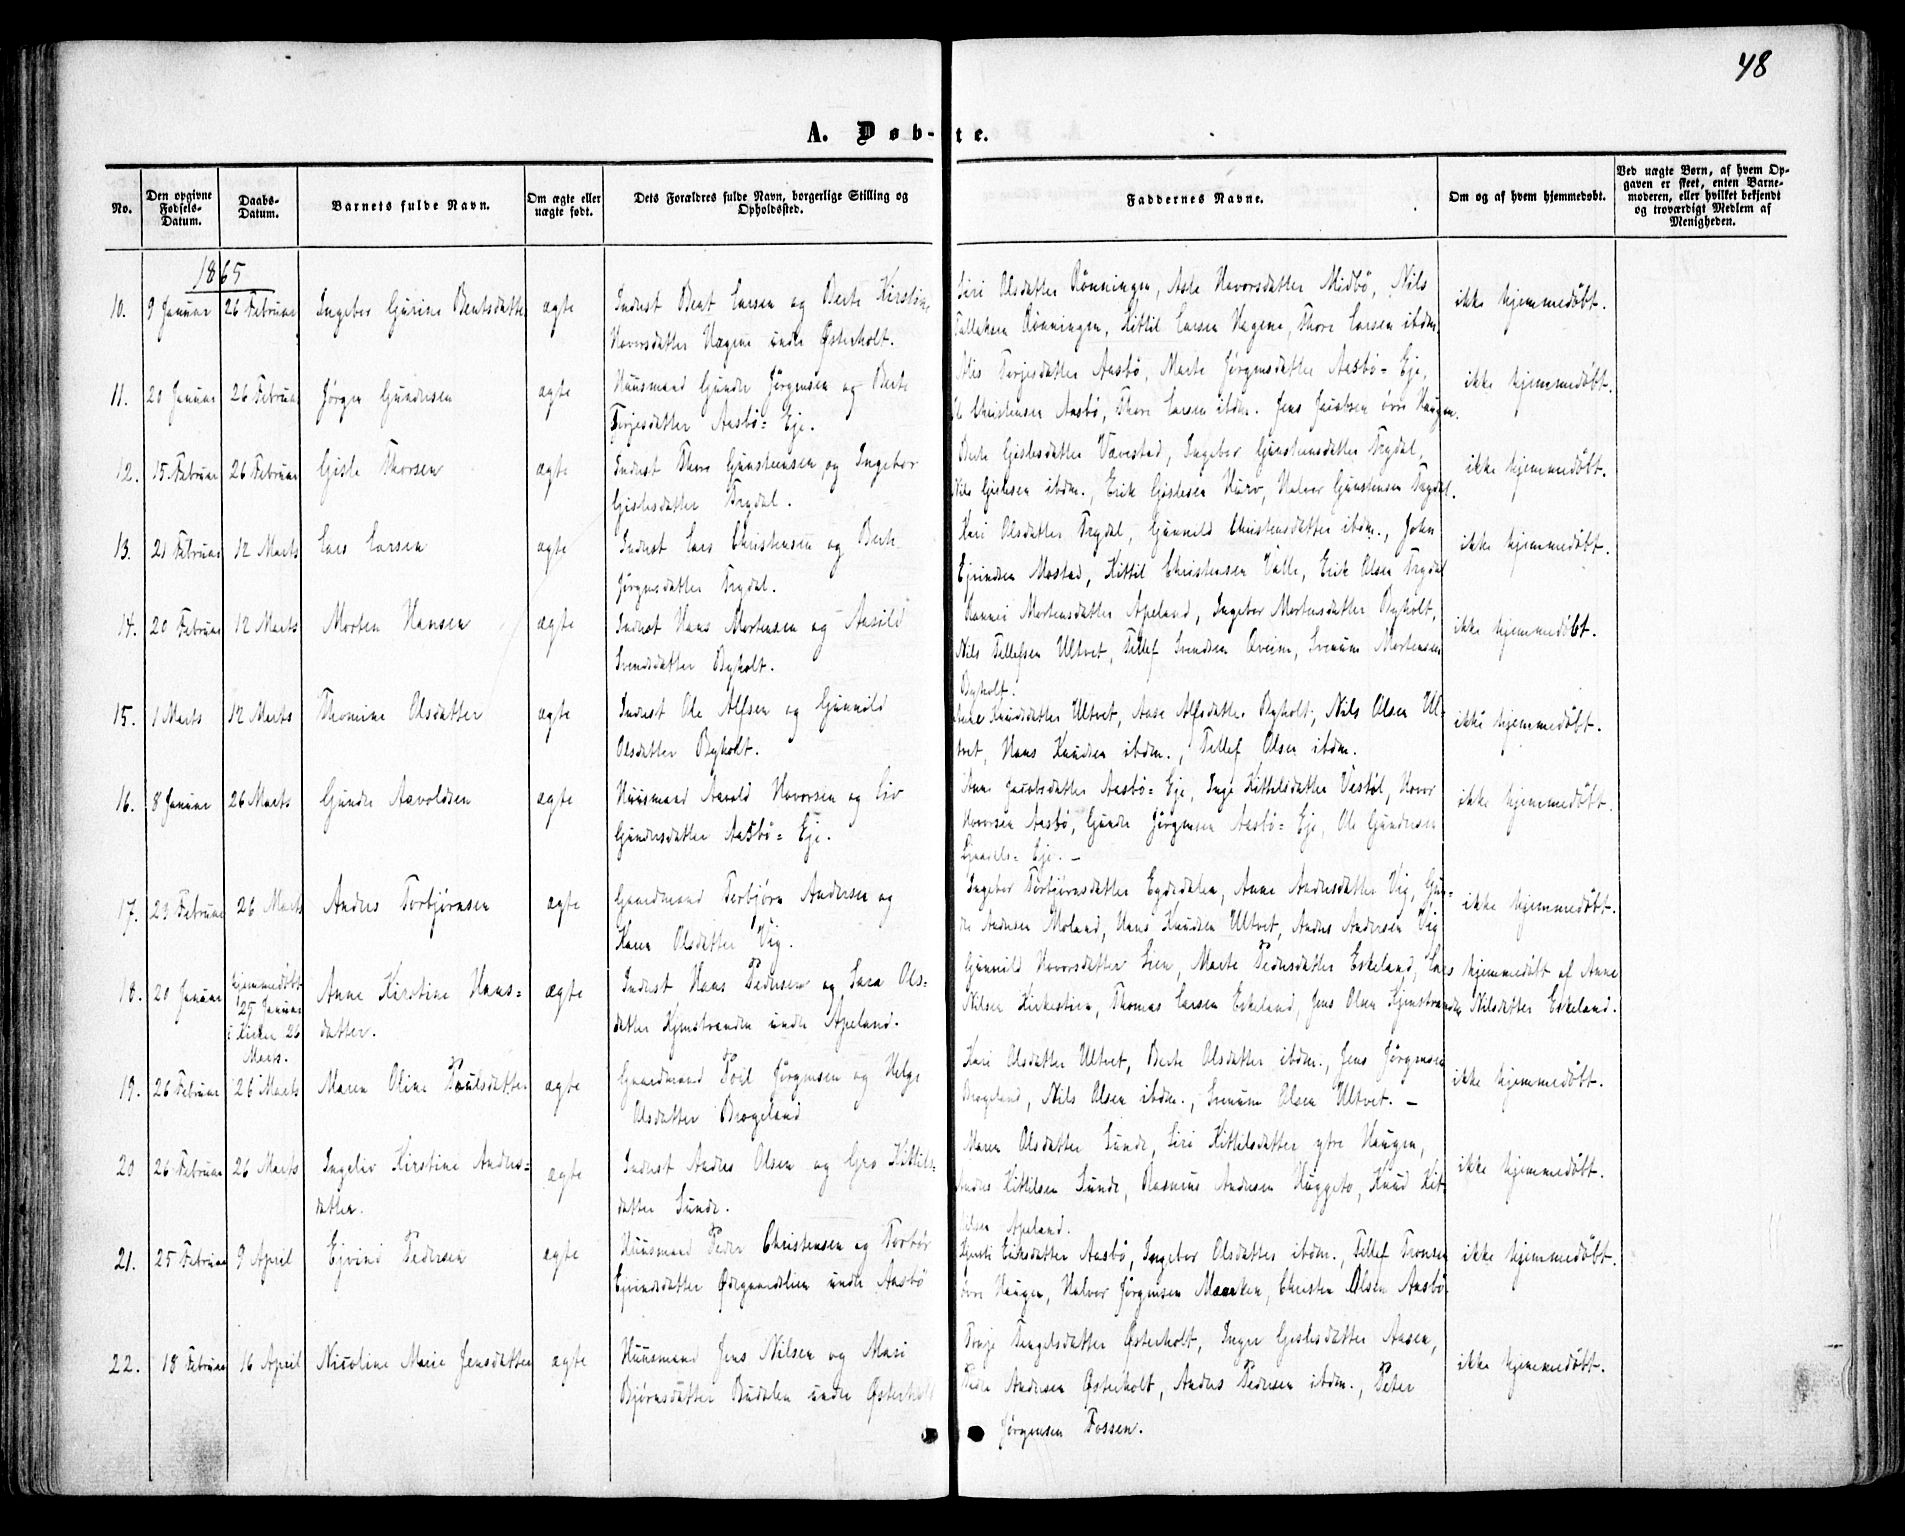 48
A. Døb-te.
No.
Den opgivne Fødsels-Datum.
Daabs-Datum.
Barnets fulde Navn.
Om ægte eller uægte født.
Dets Forældres fulde Navn, borgerlige Stilling og Opholdssted.
Faddernes Navne.
Om og af hvem hjemmedøbt.
Ved uægte Børn, af hvem Opgaven er skeet, enten Barnemoderen, eller hvilket bekjendt og troværdigt Medlem af Menigheden.
1865
10. 9 Januar 26 Februar Ingebor Gurine Bentsdatter ægte Inderst Bent Larsen og Berte Kirstine
Havorsdatter Hagene under Østerholt.
Siri Olsdatter Rønningen, Aste Havorsdatter Midbö, Nils
Tellefsen Rønningen, Kittil Larsen Hagene, Thore Larsen ibdm.
ikke hjemmedöbt.
11. 20 Januar 26 Februar Jørgen Gundersen ægte Huusmand Gunder Jörgensen og Berte
Terjesdatter Aasbö-Eje.
Terjesdatter Aasbö, Marte Jörgensdatter Aasbö-Eje,
Christensen Aasbö, Thore Larsen ibdm. Jens Jacobsen övre Haugen.
ikke hjemmedöbt.
12. 15 Februar 26 Februar Gisle Thorsen ægte Inderst Thore Gunsteensen og Ingebor
Gislesdatter Trydal.
Berte Gislesdatter Vævestad, Ingebor Gunsteensdatter Trydal,
Nils Gislesen ibdm., Erik Gislesen Hurv, Halvor Gunstensen Trydal.
ikke hjemmedöbt.
13. 21 Februar 12 Marts Lars Larsen ægte Inderst Lars Christensen og Berte
Jörgensdatter Trydal.
Kari Olsdatter Trydal, Gunnild Christensdatter ibdm., John
Ejvindsen Mostad, Kittil Christensen Valle, Erik Olsen Trydal
ikke hjemmedöbt.
14. 20 Februar 12 Marts Morten Hansen ægte Inderst Hans Mortensen og Aasild
Svendsdatter Byholt.
Mortensdatter Apeland, Ingebor Mortensdatter Byholt,
Nils Tellefsen Ultvet, Tellef Svendsen Qveim, Svenum Mortensen
Byholt.
ikke hjemmedöbt.
15. 1 Marts 12 Marts Thomine Olsdatter ægte Inderst Ole Alfsen og Gunnild
Olsdatter Byholt.
Anne Knudsdatter Ultvet, Aase Alfsdatter Byholt, Nils Olsen Ul-
tvet, Hans Knudsen ibdm., Tellef Olsen ibdm.
ikke hjemmedöbt.
16. 8 Januar 26 Marts Gunder Aavoldsen ægte Huusmand Aavold Havorsen og Liv
Gundersdatter Aasbö-Eje.
Ane Jacobsdatter Aasbö-Eje, Inge Kittilsdatter Vestöl, Havor
Havorsen Aasbö, Gunder Jörgensen Aasbö-Eje, Ole Gundersen
Eje. -
ikke hjemmedöbt.
17. 23 Februar 26 Marts Anders Torbjørnsen ægte Gaardmand Torbjörn Andersen og
Karen Olsdatter Vig.
Ingebor Torbjørnsdatter Egdedalen, Anne Andersdatter Vig, Gun-
der Andersen Moland, Hans Knudsen Ultvet, Anders Andersen Vig
ikke hjemmedöbt.
18. 20 Januar hjemmedöbt
25 Januar
i Kirken 26
Marts.
Anne Kirstine Hans-
datter.
ægte Inderst Hans Pedersen og Sara Ols-
datter Hjemstranden under Apeland.
Gunnild Havorsdatter Lien, Marte Pedersdatter Eskeland, Lars
Nilsen Kirkestien, Thomas Larsen Eskeland, Jens Olsen Hjemstranden
hjemmedöbt af Anne
Nilsdatter Eskeland.
19. 26 Februar 26 Marts Maren Oline Poulsdatter ægte Gaardmand Poul Jörgensen og Helge
Olsdatter Brogeland
Kari Olsdatter Ultvet, Berte Olsdatter ibdm., Jens Jörgensen
Brogeland, Nils Olsen ibdm., Svenum Olsen Ultvet. -
ikke hjemmedöbt.
20 26 Februar 26 Marts Ingeliv Kirstine Anders-
datter.
ægte Inderst Anders Olsen og Gro Kittils-
datter Sunde.
Maren Olsdatter Sunde, Siri Kittilsdatter ytre Haugen,
Anders Kittilsen Sunde, Rasmus Andersen Huggeto, Knud Kit-
tilsen Apeland.
ikke hjemmedöbt.
21. 25 Februar 9 April Ejvind Pedersen ægte Huusmand Peder Christensen og Torbör
Ejvindsdatter Ödegaardslien under Aasbö
Kjersti Eriksdatter Aasbö, Ingebor Olsdatter ibdm., Tellef Tronsen
övre Haugen, Halvor Jörgensen Maarken, Christen Olsen Aasbö
ikke hjemmedöbt.
22. 18 Februar 16 April Nicoline Marie Jensdatter ægte Huusmand Jens Nilsen og Mari
Bjørnsdatter Budalen under Österholt
Tengelsdatter Österholt, Inger Gislesdatter Aasen,
Peder Andersen Österholt, Anders Pedersen ibdm., Peter
Jörgensen Fossen.
ikke hjemmedöbt.